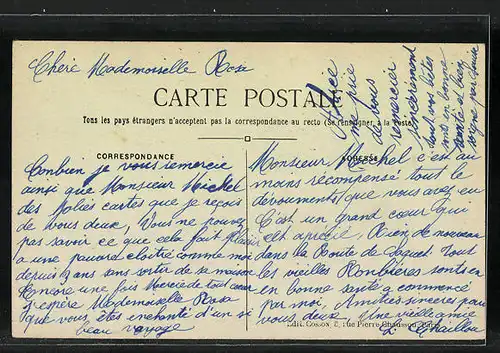 Chère Mademoiselle Rose
CARTE POSTALE
Tous les pays étrangers n'acceptent pas la correspondance au recto (Se renseigner à la poste)
CORRESPONDANCE
ADRESSE
Combien je vous remercie
ainsi que Monsieur Michel
des Jolies cartes que je reçois
de vous deux, Vous ne pouvez
pas savoir ce que cela fait plaisir
a une pauvre cloitré comme moi
depuis 3 ans sans sortir de sa maison
Encore une fois Merci de tout cœur
J'espère Mademoiselle Rose
que vous êtes enchanté d'un si
beau voyage
Monsieur Michel c'est au
moins récompensé tout le
dévouments, que vous avez eu
C'est un grand cœur qui
est apprécié. Rien de nouveau
dans la Route de Toul
les vieilles sont en
bonne santé a commencé
par moi, Amitiés sincères pour
vous deux, Une vieille amie
Edit. Cosson, 5, rue Pierre
Alice
me prie
de vous
remercier
sincèrement
tout vos bêtes
sont en bonne
santé et bien
soigné